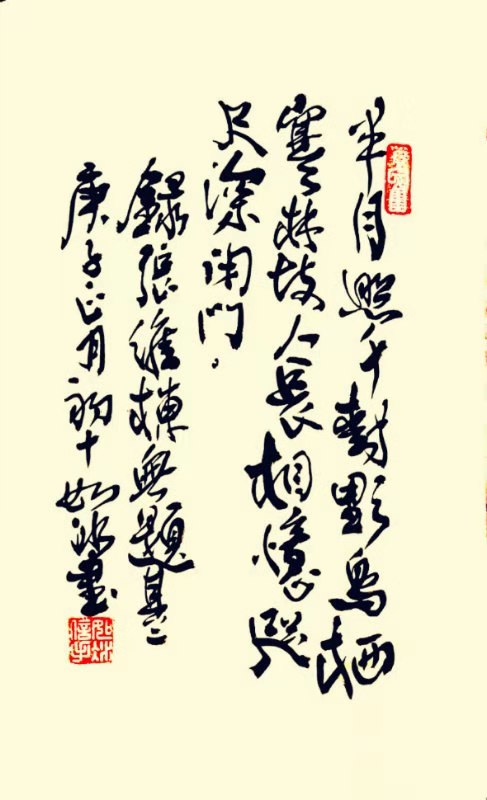 半月照千樹影烏栖
寒林故人長相憶咫
尺深閉門
錄張維無題其二
庚子正月初十如冰書